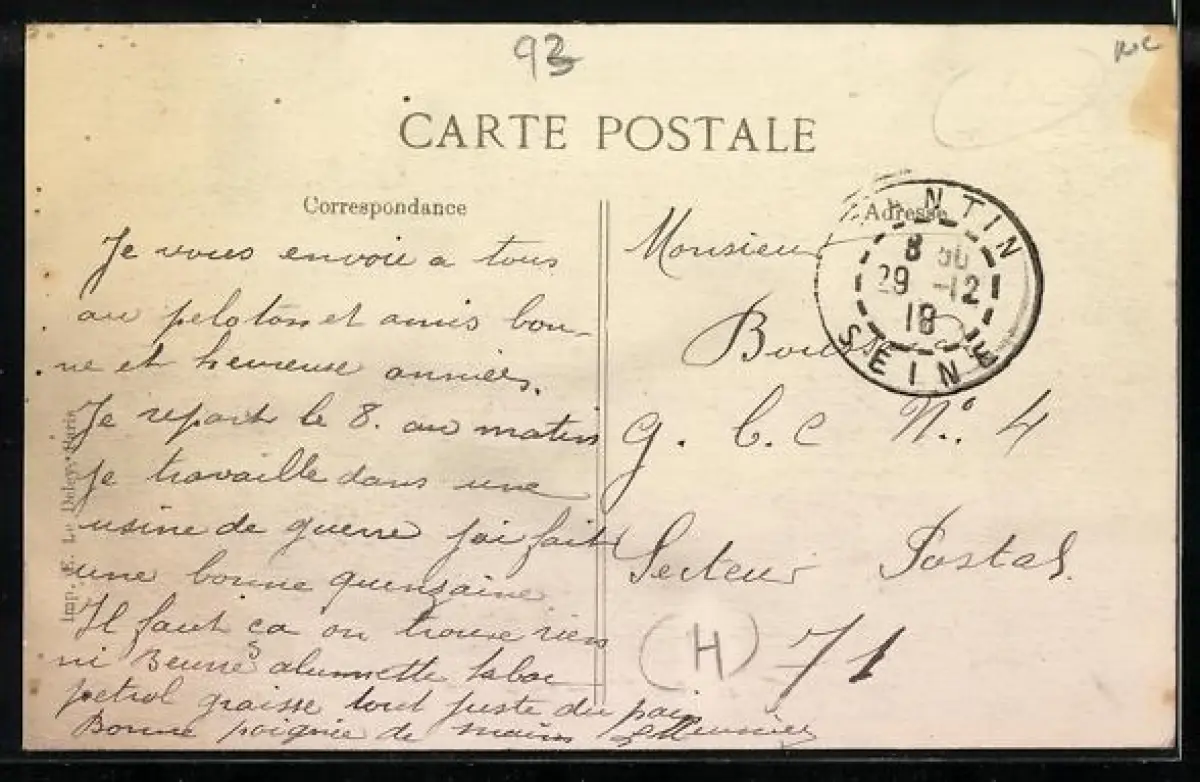 93
CARTE POSTALE
Correspondance
Je vous envoie a tous
au peloton et amis bon-
ne et heureuse anniés.
Je repart le 8. au matin
je travaille dans une
usine de guerre j'ai fait
une bonne quensaine
Il faut ça on trouve rien
ni Beurre alumette tabac
petrol graisse tout juste du pai
Bonne poignie de mains
Imp. E. Le Deley, Paris
Adresse
Monsieur
G. B. C N°. 4
Secteur Postal.
(H) 71
NTIN
8
29 -12
18
SEINE